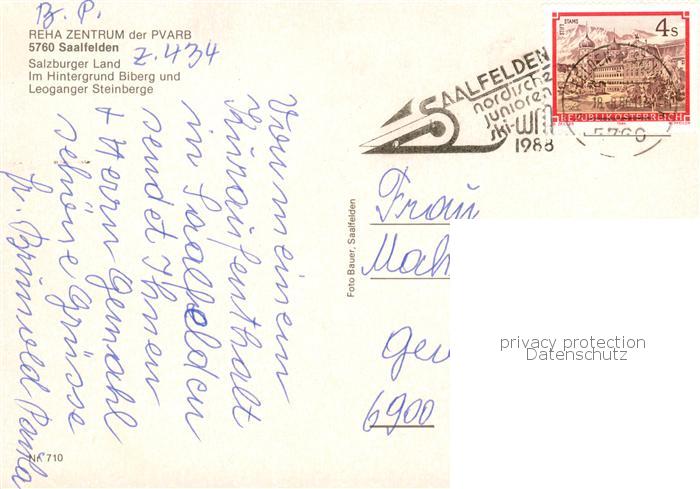 B. P.
REHA ZENTRUM der PVARB
5760 Saalfelden
Z. 434
Salzburger Land
Im Hintergrund Biberg und
Leoganger Steinberge
Von meinem
Kuraufenthalt
in Saalfelden
sendet Ihnen
+ Herrn Gemahl
schöne Grüsse
Fr. Brunold
Nr. 710
Foto Bauer, Saalfelden
SAALFELDEN
nordische
junioren
ski-WM
1988
STIFT STAMS
4s
REPUBLIK ÖSTERREICH
5760
Frau
Mah
6900
privacy protection
Datenschutz